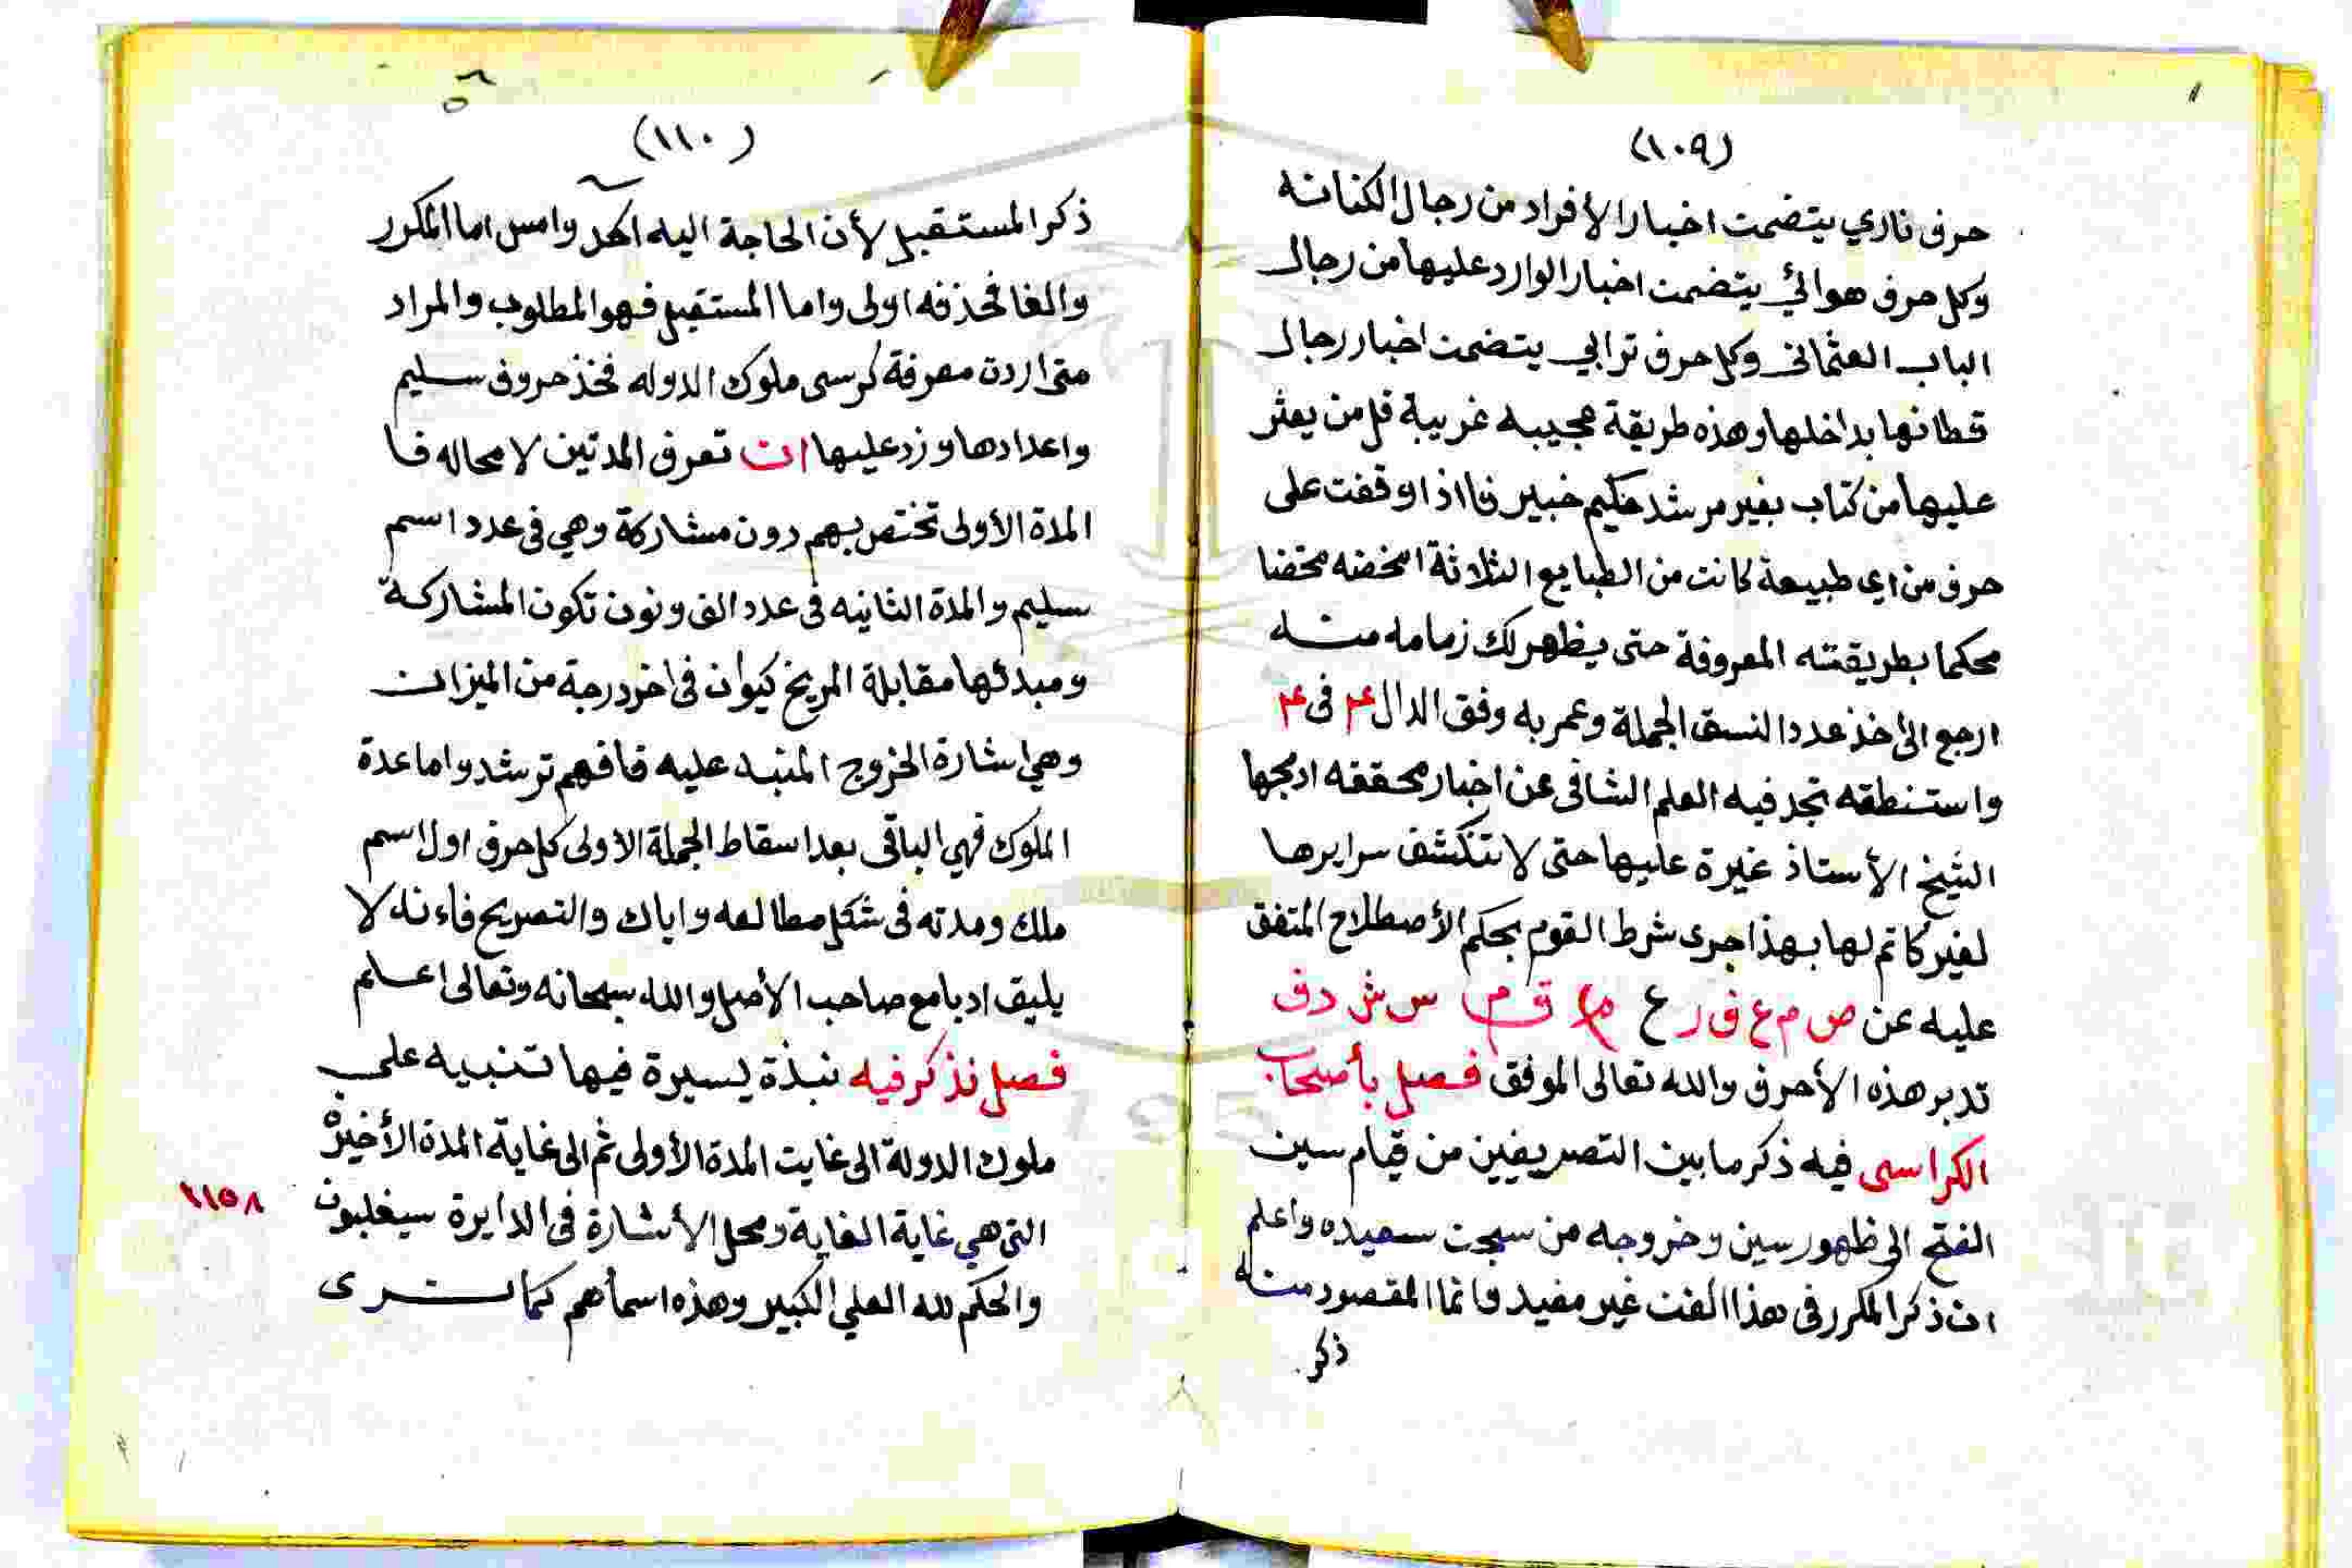 (١٠٩)
حرف ناري يتضمن اخبار الأفراد من رجال الكنانه
وكل حرف هوائي يتضمن اخبار الوارد عليها من رجال
الباب العثماني وكل حرف ترابي يتضمن اخبار رجال
قطانها بداخلها وهذه طريقة عجيبه غريبة قل من يعثر
عليها من كتاب بغير مرشد حكيم خبير فااذا وقفت على
حرف من اي طبيعة كانت من الطبايع الثلاثة امخضه مخضا
محكما بطريقته المعروفة حتى يظهر لك زمامه منه
ارجع الى اخذ عدد النسق الجملة وعمر به وفق الدال ٤ في ٤
واستنطقه تجد فيه العلم الشافى عن اخبار محققه ادمجها
الشيخ الأستاذ غيرة عليها حتى لا تنكشف سرايرها
لغير كاتم لها بهذا جرى شرط القوم بحكم الأصطلاح المتفق
عليه عن ص م ع ق ر ع م ق م س ش د ف
تدبر هذه الأحرف والله تعالى الموفق فصل بأصحاب
الكراسى فيه ذكر ما بين التصريفين من قيام سين
الفتح الى ظهور سين وخروجه من سجن سعيده واعلم
ان ذكر المكرر في هذا الفن غير مفيد فانما المقصود منه
ذكر
(١١٠)
ذكر المستقبل لأن الحاجة اليه اكد وامس اما المكرر
والغا فحذفه اولى واما المستقبل فهو المطلوب والمراد
متى اردة معرفة كرسى ملوك الدوله فخذ حروف سليم
واعدادها وزد عليها ان تعرف المدتين لا محاله فا
المدة الأولى تختص بهم دون مشاركة وهي في عدد اسم
سليم والمدة الثانيه في عدد الف ونون تكون المشاركة
ومبدئها مقابلة المريخ كيوان في اخر درجة من الميزان
وهي اشارة الخروج المنبه عليه فافهم ترشد واما عدة
الملوك فهي الباقي بعد اسقاط الجملة الأولى كل حرف اول اسم
ملك ومدته في شكل مطالعه واياك والتصريح فاءنه لا
يليق ادبا مع صاحب الأصل والله سبحانه وتعالى اعلم
فصل نذكر فيه نبذة يسيرة فيها تنبيه على
ملوك الدولة الى غايت المدة الأولى ثم الى غاية المدة الأخيرة
التى هي غاية الغاية ومحل الأشارة في الدايرة سيغلبون ١١٥٨
والحكم لله العلي الكبير وهذه اسمأهم كما ترى